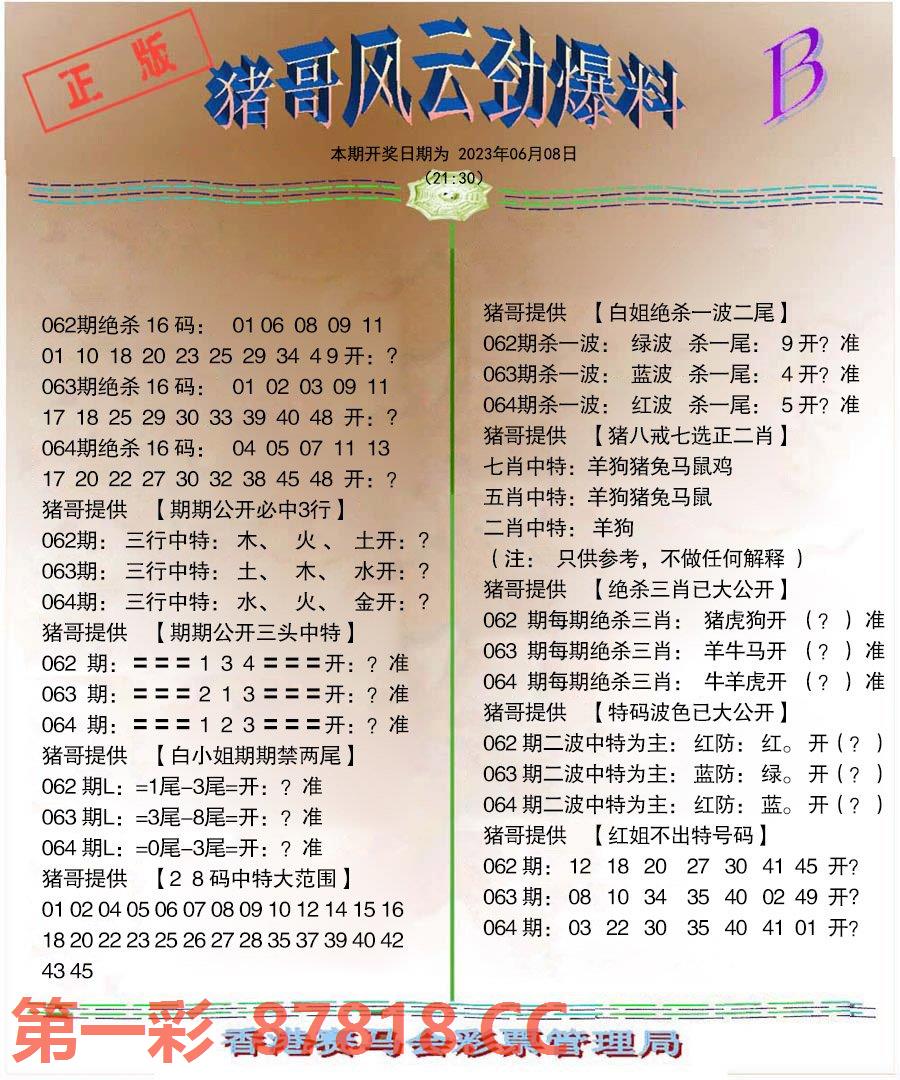 正版
猪哥风云劲爆料
B
本期开奖日期为 2023年06月08日
(21:30)
062期绝杀16码： 01 06 08 09 11
01 10 18 20 23 25 29 34 49开：?
063期绝杀16码： 01 02 03 09 11
17 18 25 29 30 33 39 40 48 开：?
064期绝杀16码： 04 05 07 11 13
17 20 22 27 30 32 38 45 48 开：?
猪哥提供 【期期公开必中3行】
062期： 三行中特： 木、 火、 土开：?
063期： 三行中特： 土、 木、 水开：?
064期： 三行中特： 水、 火、 金开：?
猪哥提供 【期期公开三头中特】
062 期：===134===开：? 准
063 期：===213===开：? 准
064 期：===123===开：? 准
猪哥提供 【白小姐期期禁两尾】
062期L：=1尾-3尾=开：? 准
063期L：=3尾-8尾=开：? 准
064期L：=0尾-3尾=开：? 准
猪哥提供 【28码中特大范围】
01 02 04 05 06 07 08 09 10 12 14 15 16
18 20 22 23 25 26 27 28 35 37 39 40 42
43 45
猪哥提供 【白姐绝杀一波二尾】
062期杀一波： 绿波 杀一尾： 9开? 准
063期杀一波： 蓝波 杀一尾： 4开? 准
064期杀一波： 红波 杀一尾： 5开? 准
猪哥提供 【猪八戒七选正二肖】
七肖中特：羊狗猪兔马鼠鸡
五肖中特：羊狗猪兔马鼠
二肖中特： 羊狗
（注： 只供参考，不做任何解释 ）
猪哥提供 【绝杀三肖已大公开】
062 期每期绝杀三肖： 猪虎狗开 （? ）准
063 期每期绝杀三肖： 羊牛马开 （? ）准
064 期每期绝杀三肖： 牛羊虎开 （? ）准
猪哥提供 【特码波色已大公开】
062期二波中特为主： 红防： 红。 开（? ）
063期二波中特为主： 蓝防： 绿。 开（? ）
064期二波中特为主： 红防： 蓝。 开（? ）
猪哥提供 【红姐不出特号码】
062期： 12 18 20 27 30 41 45 开?
063期： 08 10 34 35 40 02 49 开?
064期： 03 22 30 35 40 41 01 开?
第一彩 87818.CC
香港赛马会彩票管理局